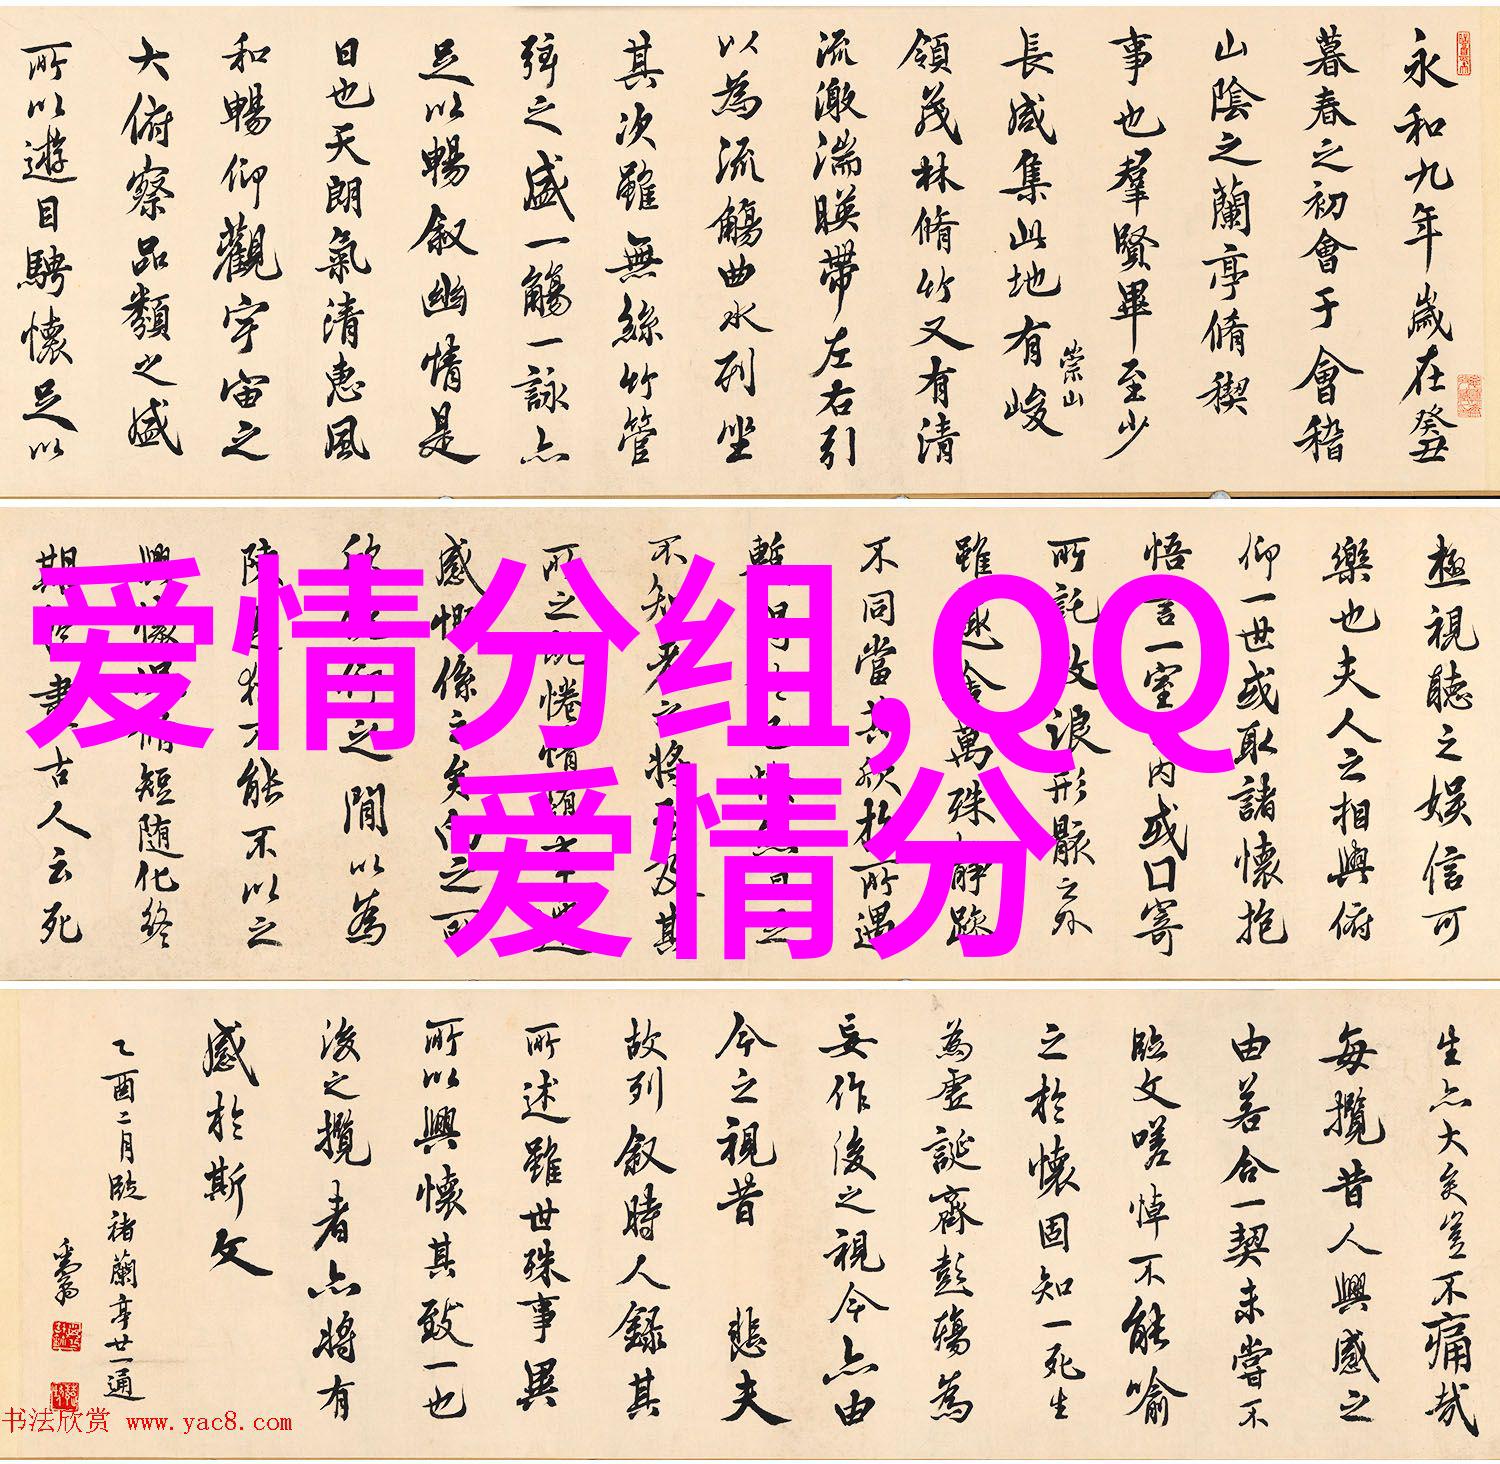 永和九年歲在癸丑
暮春之初會于會稽
山陰之蘭亭脩稧
事也羣賢畢至少
長咸集此地有峻
崇山
領茂林脩竹又有清
流激湍暎帶左右引
以為流觴曲水列坐
其次雖無絲竹管
弦之盛一觴一詠亦
足以暢敘幽情是
日也天朗氣清惠風
和暢仰觀宇宙之
大俯察品類之盛
所以遊目騁懷足以
極視聽之娛信可
樂也夫人之相與俯
仰一世或取諸懷抱
悟言一室內或口寄
所託放浪形骸之外
雖趣舍萬殊靜躁
不同當其欣於所遇
不知老之將至及其
感慨係之矣向之所
間以為
能不以之
脩短隨化終
古人云死
爱情分组,QQ
爱情分
生亦大矣豈不痛哉
每攬昔人興感之
由若合一契未嘗不
臨文嗟悼不能喻
之於懷固知一死生
為虛誕齊彭殤為
妄作後之視今亦由
今之視昔 悲夫
故列敘時人錄其
所述雖世殊事異
所以興懷其致一也
後之攬者亦將有
感於斯文
乙酉二月臨褚蘭亭廿一通
书法欣赏 www.yac8.com